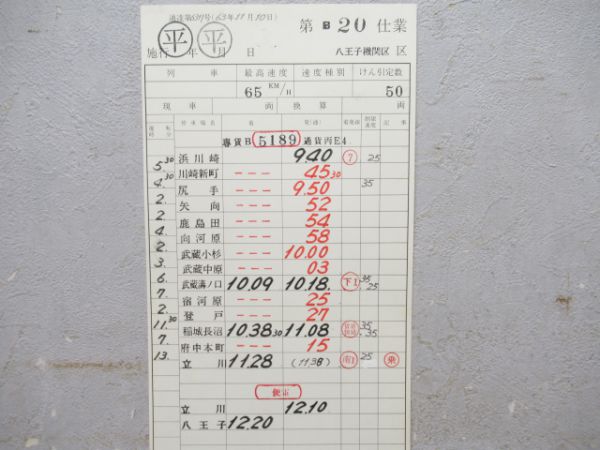 達達第637号(63年11月10日)
平 平 第 B 20 仕業
施行 年 月 日 八王子機関区 区
列 車 最高速度 速度種別 けん引定数
65 KM/H 50
現 車 両 換 算 両
運転時分 停車場名 着 発(通) 着発線 制限速度 記事
専貨B 5189 通貨丙E4
浜川崎 9.40 7 25
5.30 川崎新町 --- 45 30
4.30 尻手 --- 9.50 35
2. 矢向 --- 52
2. 鹿島田 --- 54
4. 向河原 --- 58
2. 武蔵小杉 --- 10.00
3. 武蔵中原 --- 03
6. 武蔵溝ノ口 10.09 10.18. 下1 35 25
7. 宿河原 --- 25
2. 登戸 --- 27
11.30 稲城長沼 10.38 30 11.08 35 35
7. 府中本町 --- 15
13. 立川 11.28 (1138) 南1 25 乗
便市
立川 12.10
八王子 12.20